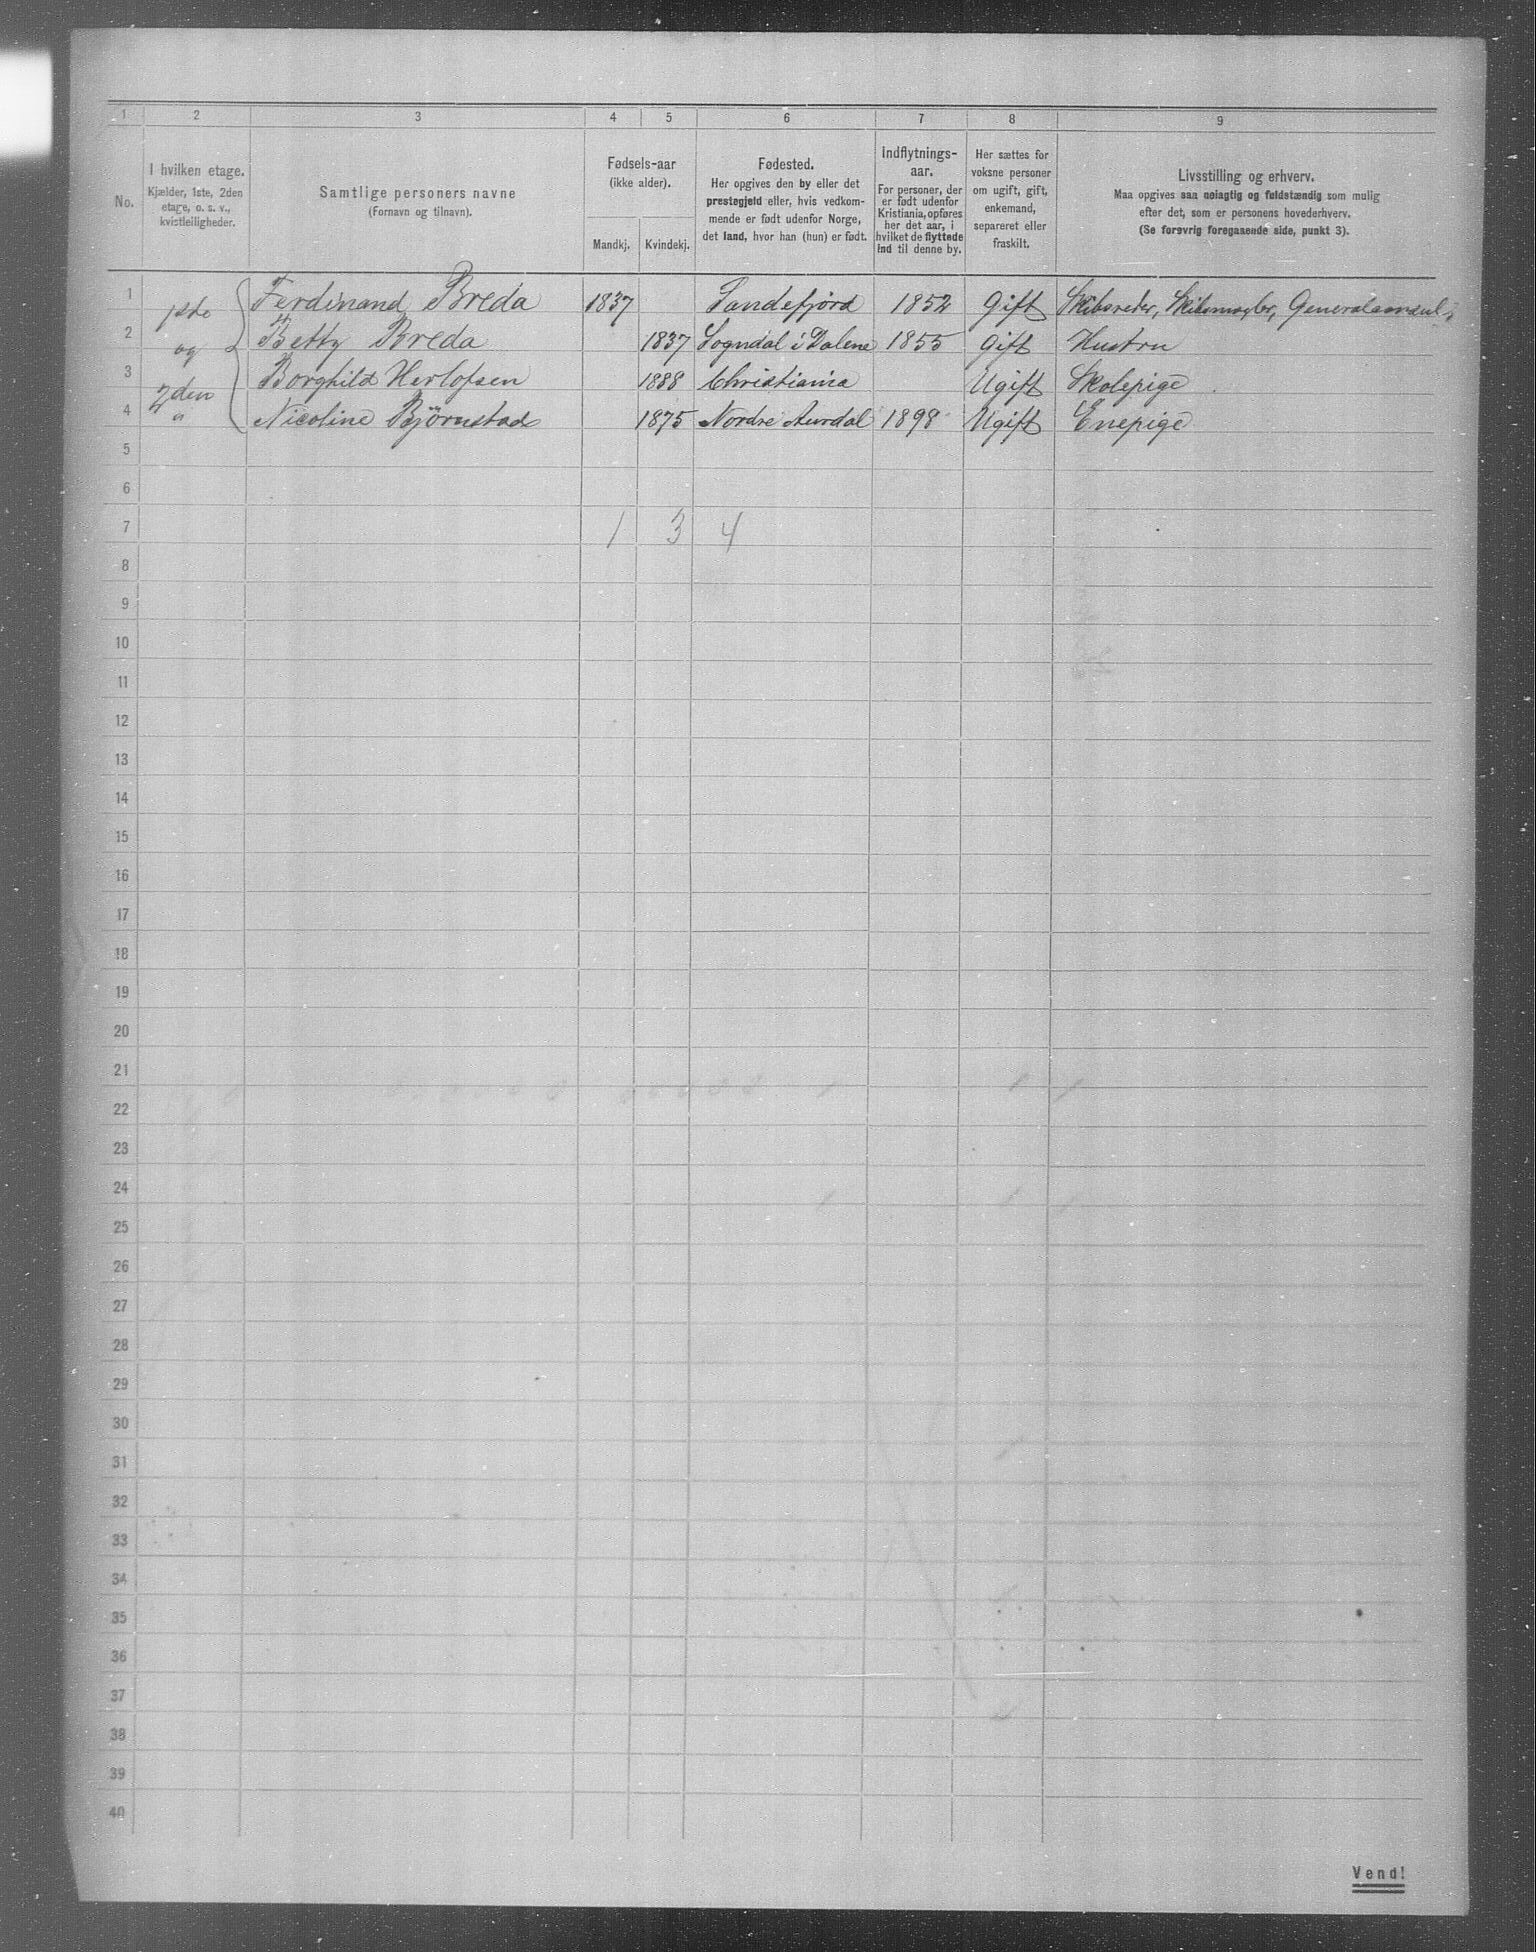 1 2 3 4 5 6 7 8 9
No.
I hvilken etage.
Kjælder, 1ste, 2den
etage, o. s. v.,
kvistleiligheder.
Samtlige personers navne
(Fornavn og tilnavn).
Fødsels-aar
(ikke alder).
Mandkj. Kvindekj.
Fødested.
Her opgives den by eller det
prestegjeld eller, hvis vedkom-
mende er født udenfor Norge,
det land, hvor han (hun) er født.
Indflytnings-
aar.
For personer, der
er født udenfor
Kristiania, opføres
her det aar, i
hvilket de flyttede
ind til denne by.
Her sættes for
voksne personer
om ugift, gift,
enkemand,
separeret eller
fraskilt.
Livsstilling og erhverv.
Maa opgives saa nøiagtig og fuldstændig som mulig
efter det, som er personens hovederhverv.
(Se forøvrig foregaaende side, punkt 3).
1 1ste Ferdinand Breda 1837 Sandefjord 1852 Gift Skibsreder, Skibsmægler,
2 og Betty Breda 1837 Sogndal i Dalene 1855 Gift Hustru
3 2den Borghild Herlofsen 1888 Christiania Ugift Skolepige
4 " Nicoline Bjørnstad 1875 Nordre Aurdal 1898 Ugift Enepige
5
6
7 1 3 4
8
9
10
11
12
13
14
15
16
17
18
19
20
21
22
23
24
25
26
27
28
29
30
31
32
33
34
35
36
37
38
39
40
Vend!